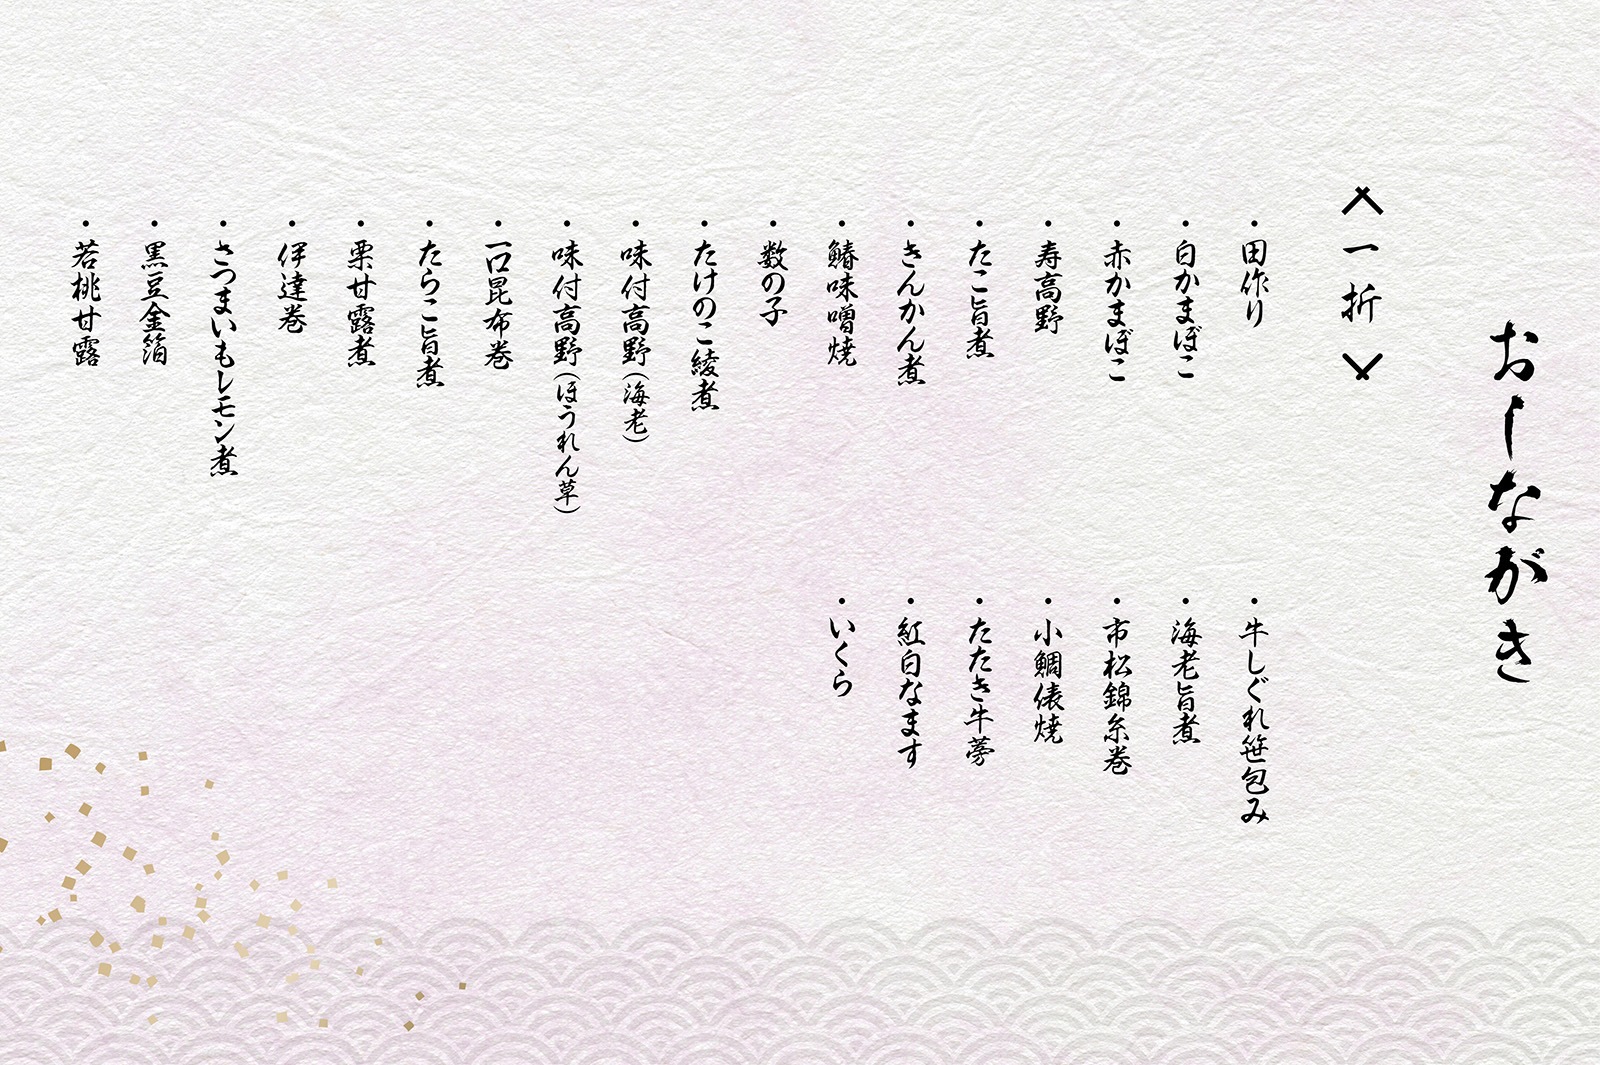 おしながき
〈一折〉
・田作り
・白かまぼこ
・赤かまぼこ
・寿高野
・たこ旨煮
・きんかん煮
・鰆味噌焼
・数の子
・たけのこ綾煮
・味付高野(海老)
・味付高野(ほうれん草)
・一口昆布巻
・たらこ旨煮
・栗甘露煮
・伊達巻
・さつまいもレモン煮
・黒豆金箔
・若桃甘露
・牛しぐれ笹包み
・海老旨煮
・市松錦糸巻
・小鯛俵焼
・たたき牛蒡
・紅白なます
・いくら